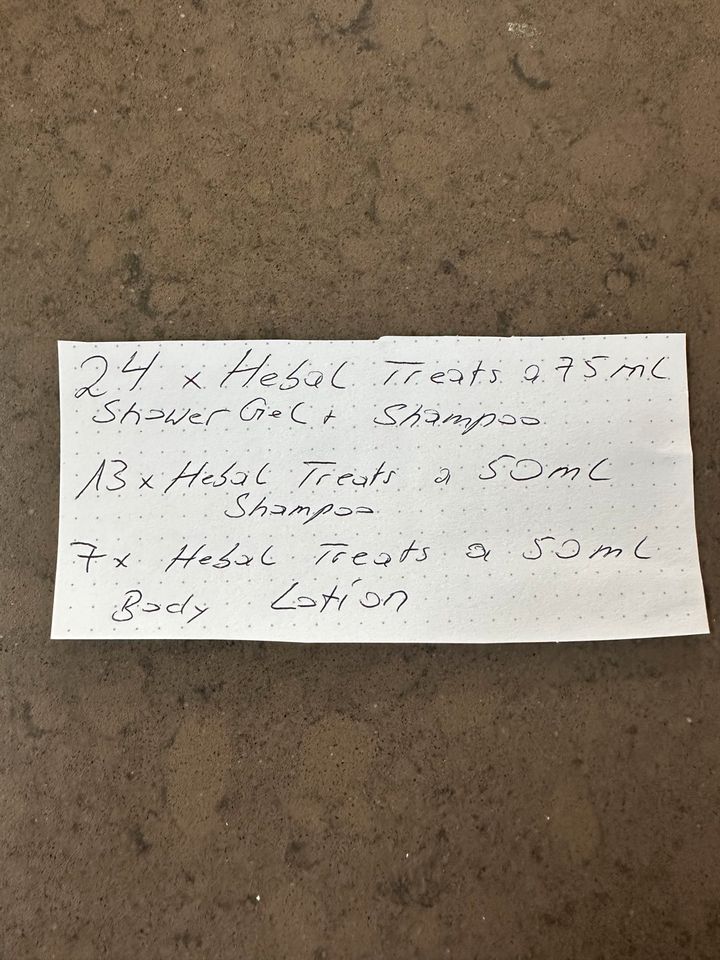 24 x Hebal Treats a 75ml
Shower Gel + Shampoo
13 x Hebal Treats a 50ml
Shampoo
7x Hebal Treats a 50ml
Body Lotion